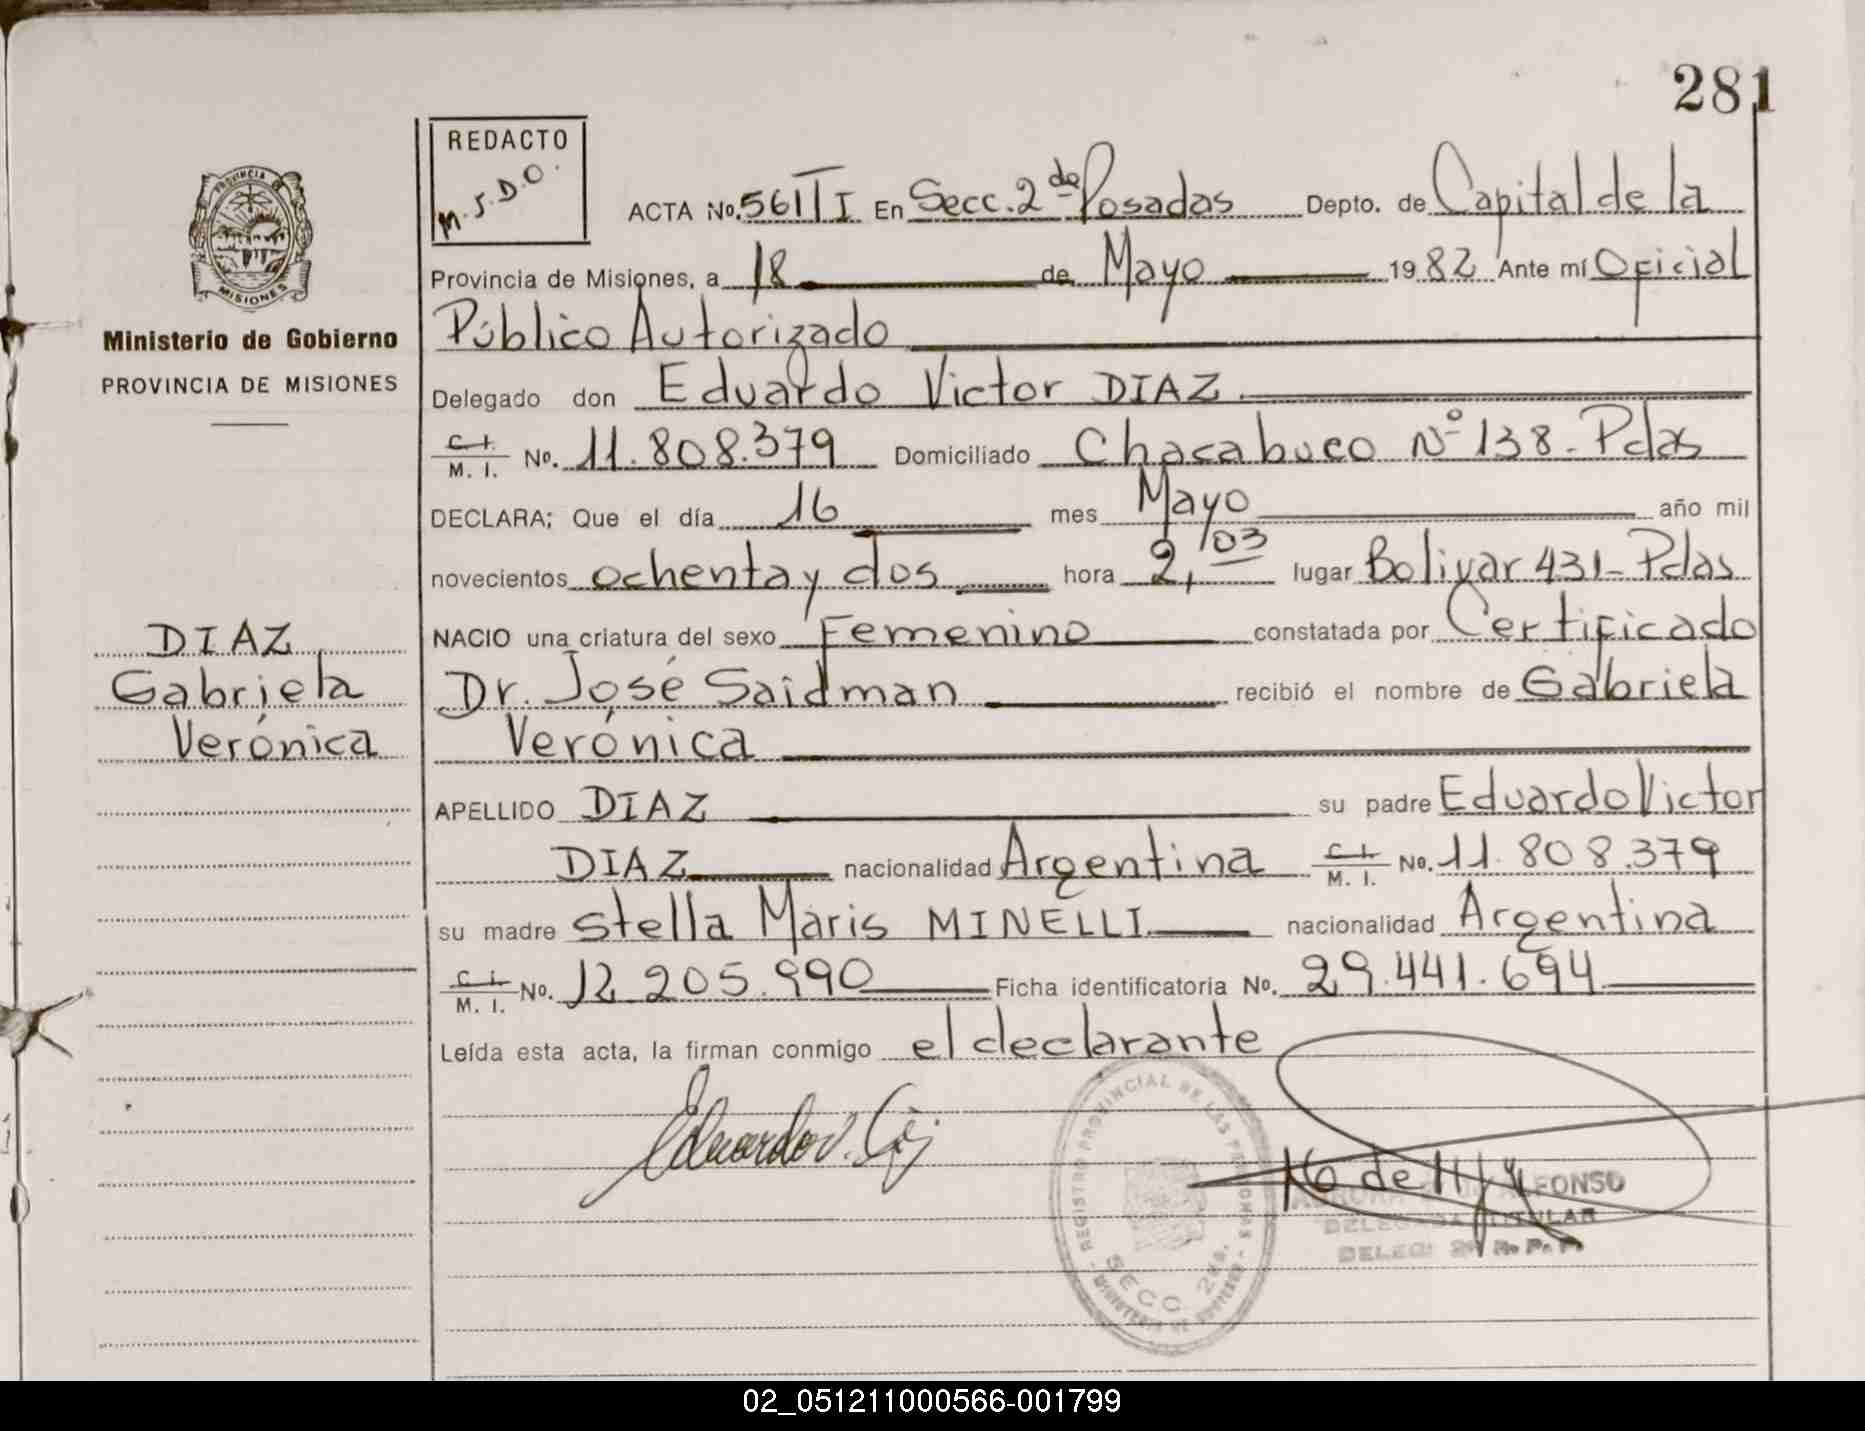 281
REDACTO
M.S.D.O.
ACTA No. 561 TI En Secc. 2da Posadas Depto. de Capital de la
PROVINCIA
MISIONES
Ministerio de Gobierno
PROVINCIA DE MISIONES
Provincia de Misiones, a 18 de Mayo 1982 Ante mí Oficial
Público Autorizado
Delegado don Eduardo Victor DIAZ
C. I. M. I. No. 11.808.379 Domiciliado Chacabuco Nº 138 - Pdas
DECLARA; Que el día 16 mes Mayo año mil
novecientos ochenta y dos hora 2,03 lugar Bolivar 431 - Pdas
NACIO una criatura del sexo Femenino constatada por Certificado
Dr. José Saidman recibió el nombre de Gabriela
Verónica
DIAZ
Gabriela
Verónica
APELLIDO DIAZ su padre Eduardo Victor
DIAZ nacionalidad Argentina C. I. M. I. No. 11.808.379
su madre Stella Maris MINELLI nacionalidad Argentina
C. I. M. I. No. 12.205.990 Ficha identificatoria No. 29.441.694
Leída esta acta, la firman conmigo el declarante
Eduardo V.
REGISTRO PROVINCIAL DE LAS PERSONAS
SECC. 2da.
MINISTERIO DE GOBIERNO
ALFONSO
DELEGADA TITULAR
DELEG. 2ª R. P. P.
02_051211000566-001799